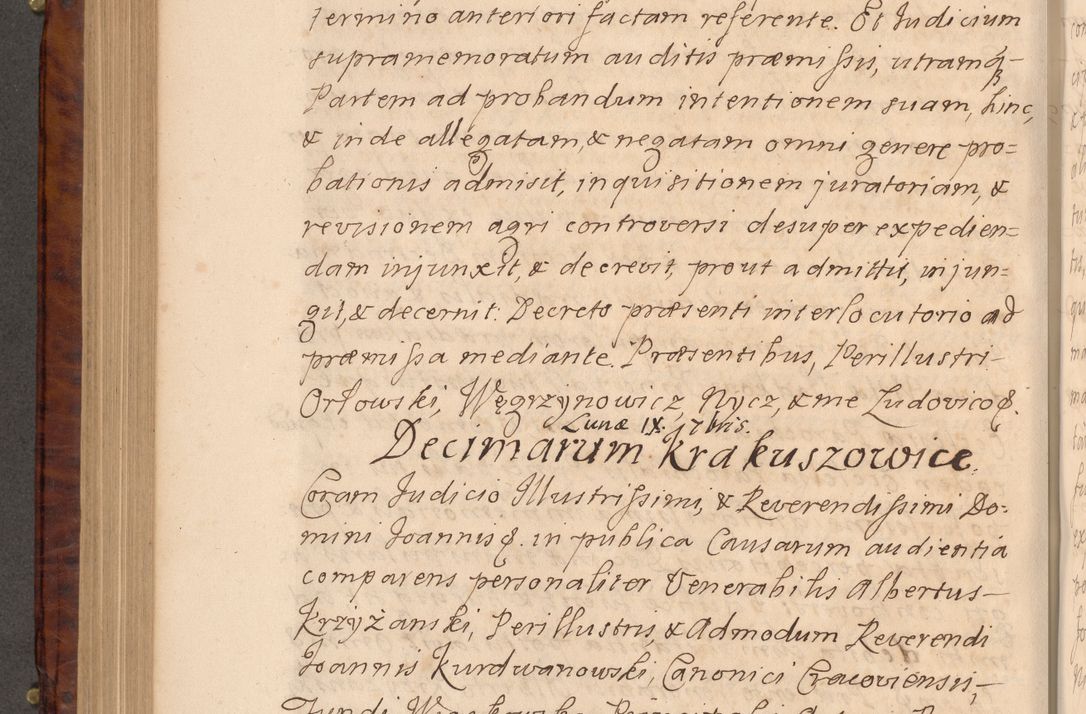 Termino anteriori factam referente. Et Iudicium
supramemoratum auditis præmissis, utramq̃
Partem ad probandum intentionem suam, hinc,
& inde allegatam, & negatam omni genere pro=
bationis admisit, inquisitionem juratoriam, &
revisionem agri controversi desuper expedien=
dam injunxit, & decrevit, prout admittit, injun=
git, & decernit: Decreto præsenti interlocutorio ad
præmissa mediante. Præsentibus, Perillustri-
Orłowski, Węgrzynowicz, Nycz, & me Ludovico &.
Lunæ IX. 7bris.
Decimarum Krakuszowice
Coram Iudicio Illustrissimi, & Reverendissimi Do=
mini Joannis &. in publica Causarum audientia
comparens personaliter Venerabilis Albertus-
Krzyżanski, Perillustris, & Admodum Reverendi
Joannis Kurdwanowski, Canonici Cracoviensis,-
Fundi